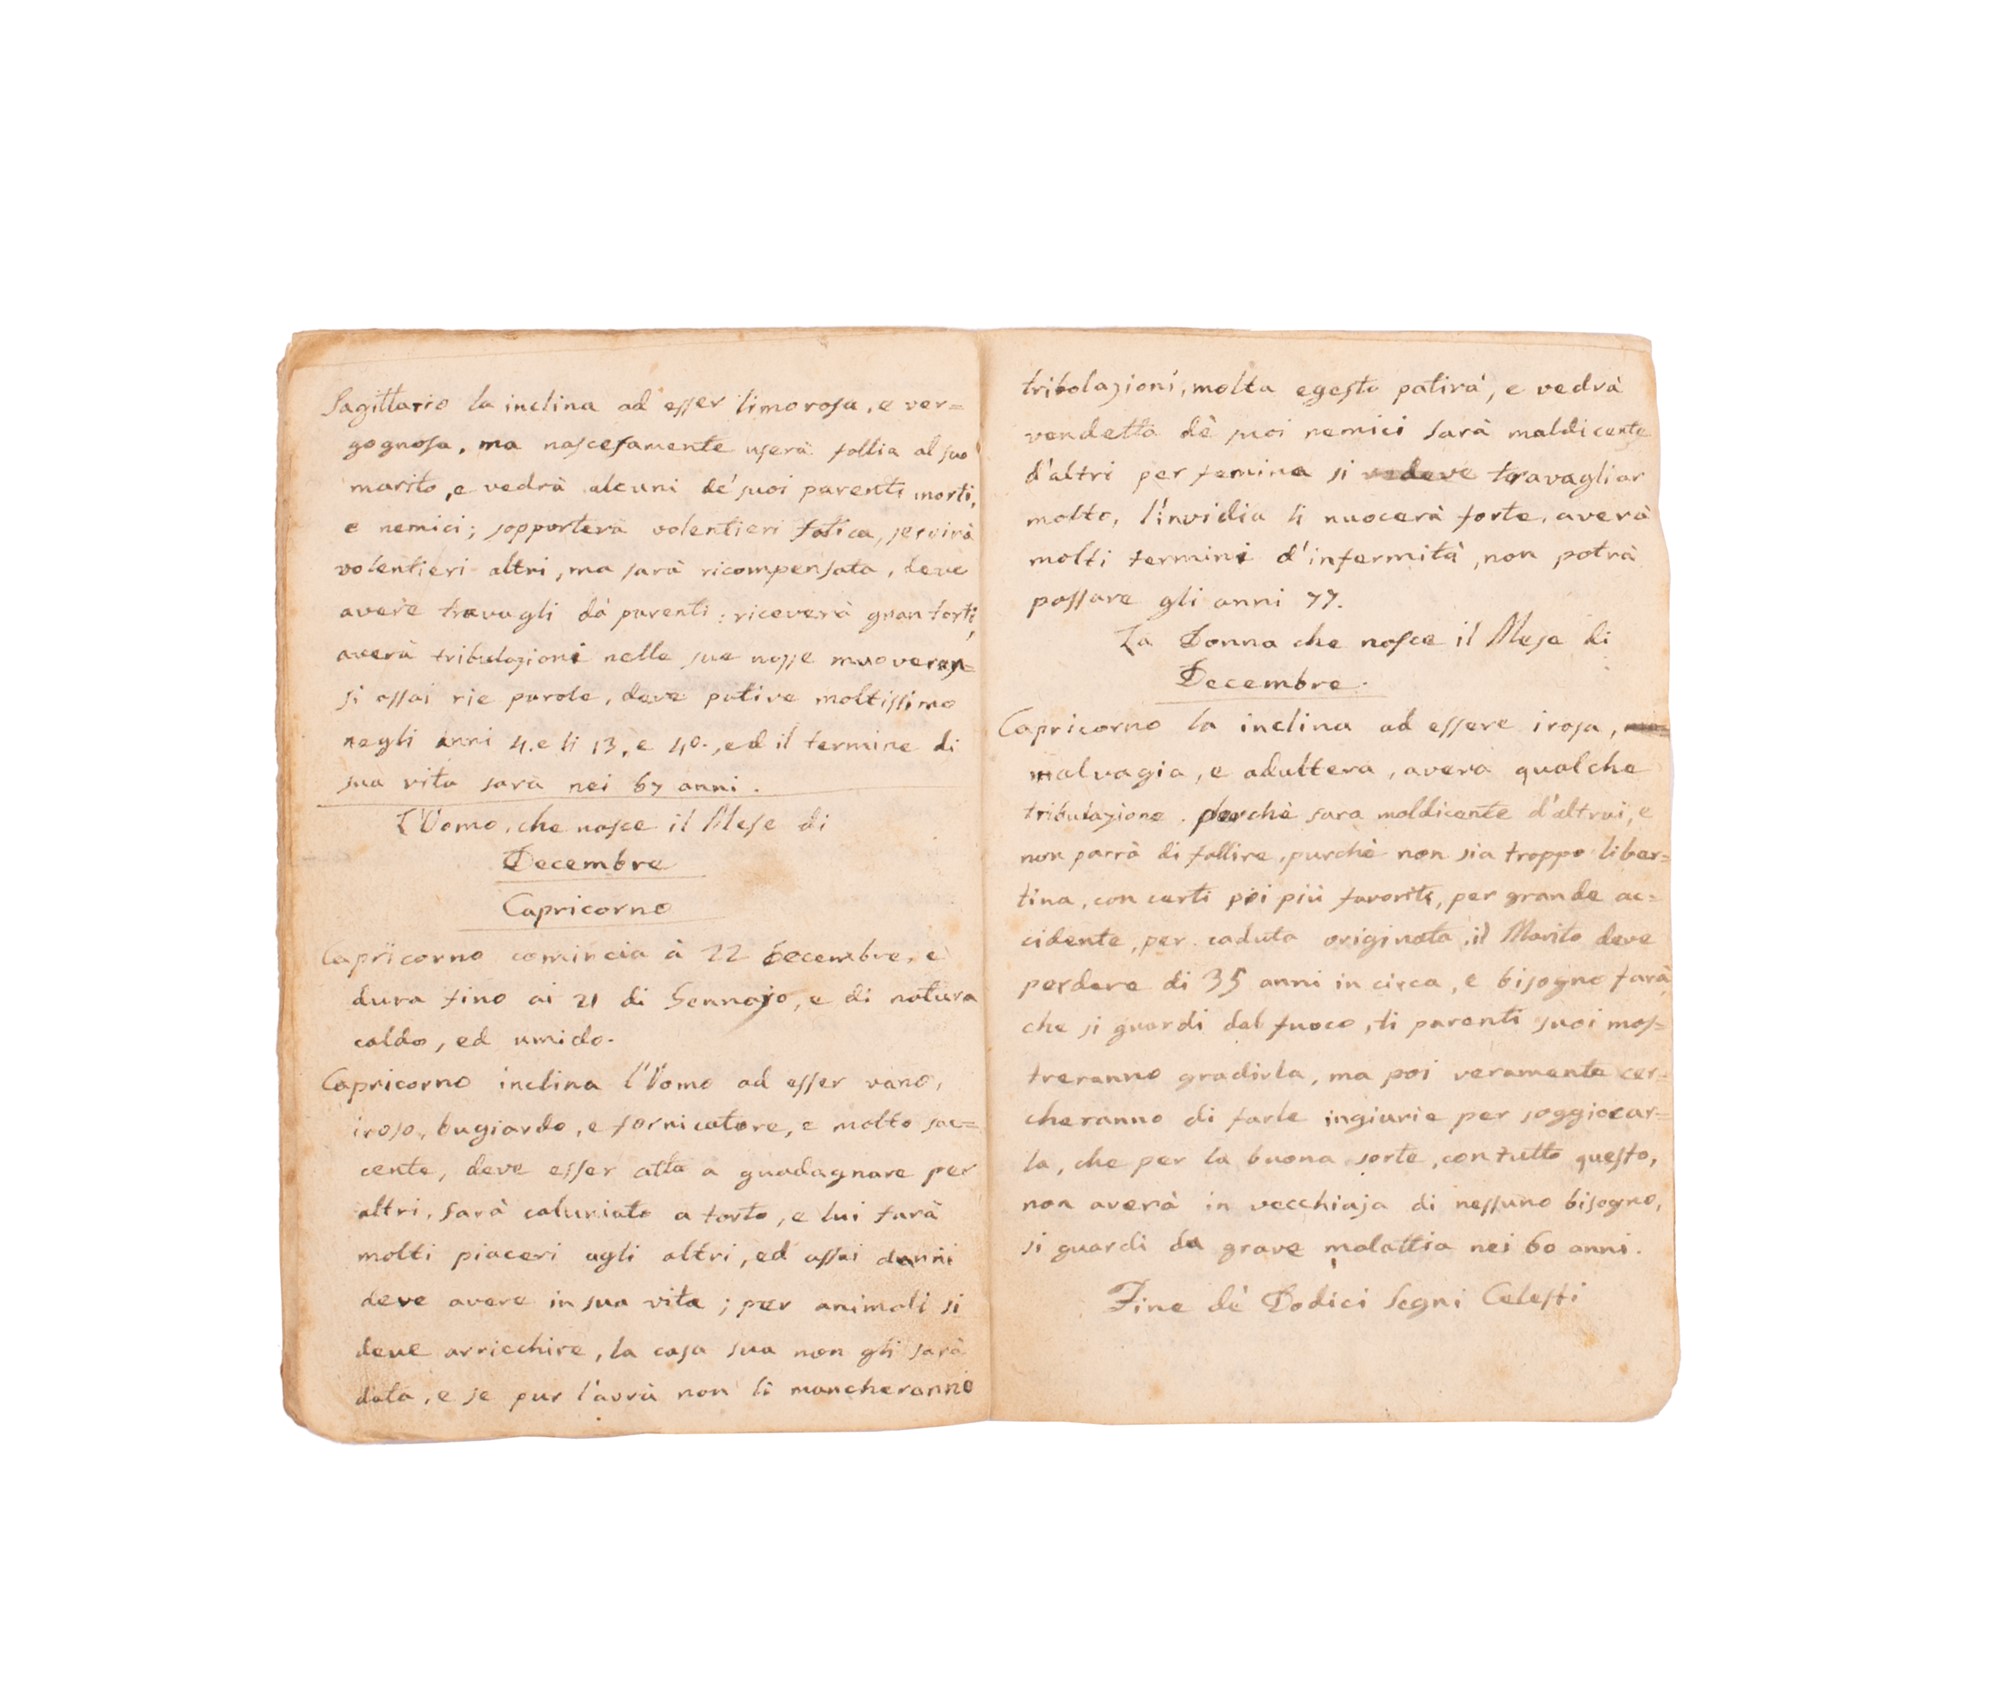 Sagittario la inclina ad esser timorosa, e ver=
gognosa, ma nascosamente userà follia al suo
marito, e vedrà alcuni de' suoi parenti morti,
e nemici; sopporterà volentieri fatica, servirà
volentieri altri, ma sarà ricompensata, deve
avere travagli dà parenti: riceverà gran torti,
averà tribulazioni nelle sue nozze muoveran=
si assai rie parole, deve patire moltissimo
negli anni 4. e li 13, e 40., ed il termine di
sua vita sarà nei 67 anni.
L'Uomo, che nasce il Mese di
Decembre
Capricorno
Capricorno comincia à 22 Decembre, e
dura fino ai 21 di Gennajo, e di natura
caldo, ed umido.
Capricorno inclina l'Uomo ad esser vano,
iroso, bugiardo, e fornicatore, e molto sac=
cente, deve esser atto a guadagnare per
altri, sarà caluniato a torto, e lui farà
molti piaceri agli altri, ed assai danni
deve avere in sua vita; per animali si
deve arricchire, la casa sua non gli sarà
data, e se pur l'avrà non li mancheranno
tribolazioni, molta egesta patirà, e vedrà
vendetta dè suoi nemici sarà maldicente
d'altri per femina si deve travagliar
molto, l'invidia li nuocerà forte, averà
molti termini d'infermità, non potrà
passare gli anni 77.
La Donna che nasce il Mese di
Decembre.
Capricorno la inclina ad essere irosa,
malvagia, e adultera, averà qualche
tribulazione. perchè sara maldicente d'altrui, e
non parrà di fallire, purchè non sia troppo liber=
tina, con certi poi più favoriti, per grande ac=
cidente, per caduta originata, il Marito deve
perdere di 35 anni in circa, e bisogno farà,
che si guardi dal fuoco, li parenti suoi mos=
treranno gradirla, ma poi veramente cer=
cheranno di farle ingiurie per soggiocar=
la, che per la buona sorte, con tutto questo,
non averà in vecchiaja di nessuno bisogno,
si guardi da grave malattia nei 60 anni.
Fine dè Dodici Segni Celesti